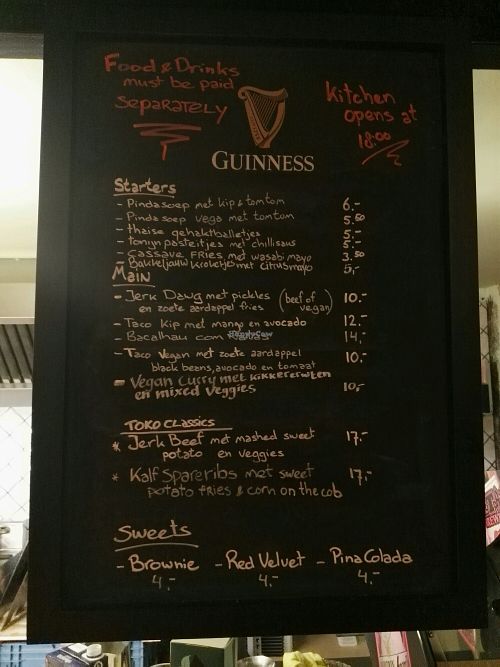 Food & Drinks
must be paid
SEPARATELY
Kitchen
opens at
18:00
GUINNESS
Starters
- Pindasoep met kip & tomtom 6.-
- Pinda soep vega met tomtom 5.50
- thaise gehaktballetjes 5.-
- tonijn pasteitjes met chillisaus 5.-
- Cassave FRIES met wasabi mayo 3.50
- Bakkeljauw kroketjes met citrusmayo 5,-
Main
- Jerk Dawg met pickles (beef of 10.-
en zoete aardappel fries vegan)
- Taco Kip met mango en avocado 12.-
- Bacalhau com 14,-
- Taco Vegan met zoete aardappel 10.-
black beans, avocado en tomaat
- Vegan Curry met kikkererwten 10,-
en mixed veggies
TOKO CLASSICS
* Jerk Beef met mashed sweet 17.-
potato en veggies
* Kalf Spareribs met sweet 17,-
potato fries & corn on the cob
Sweets
- Brownie - Red Velvet - Pina Colada
4,- 4,- 4,-